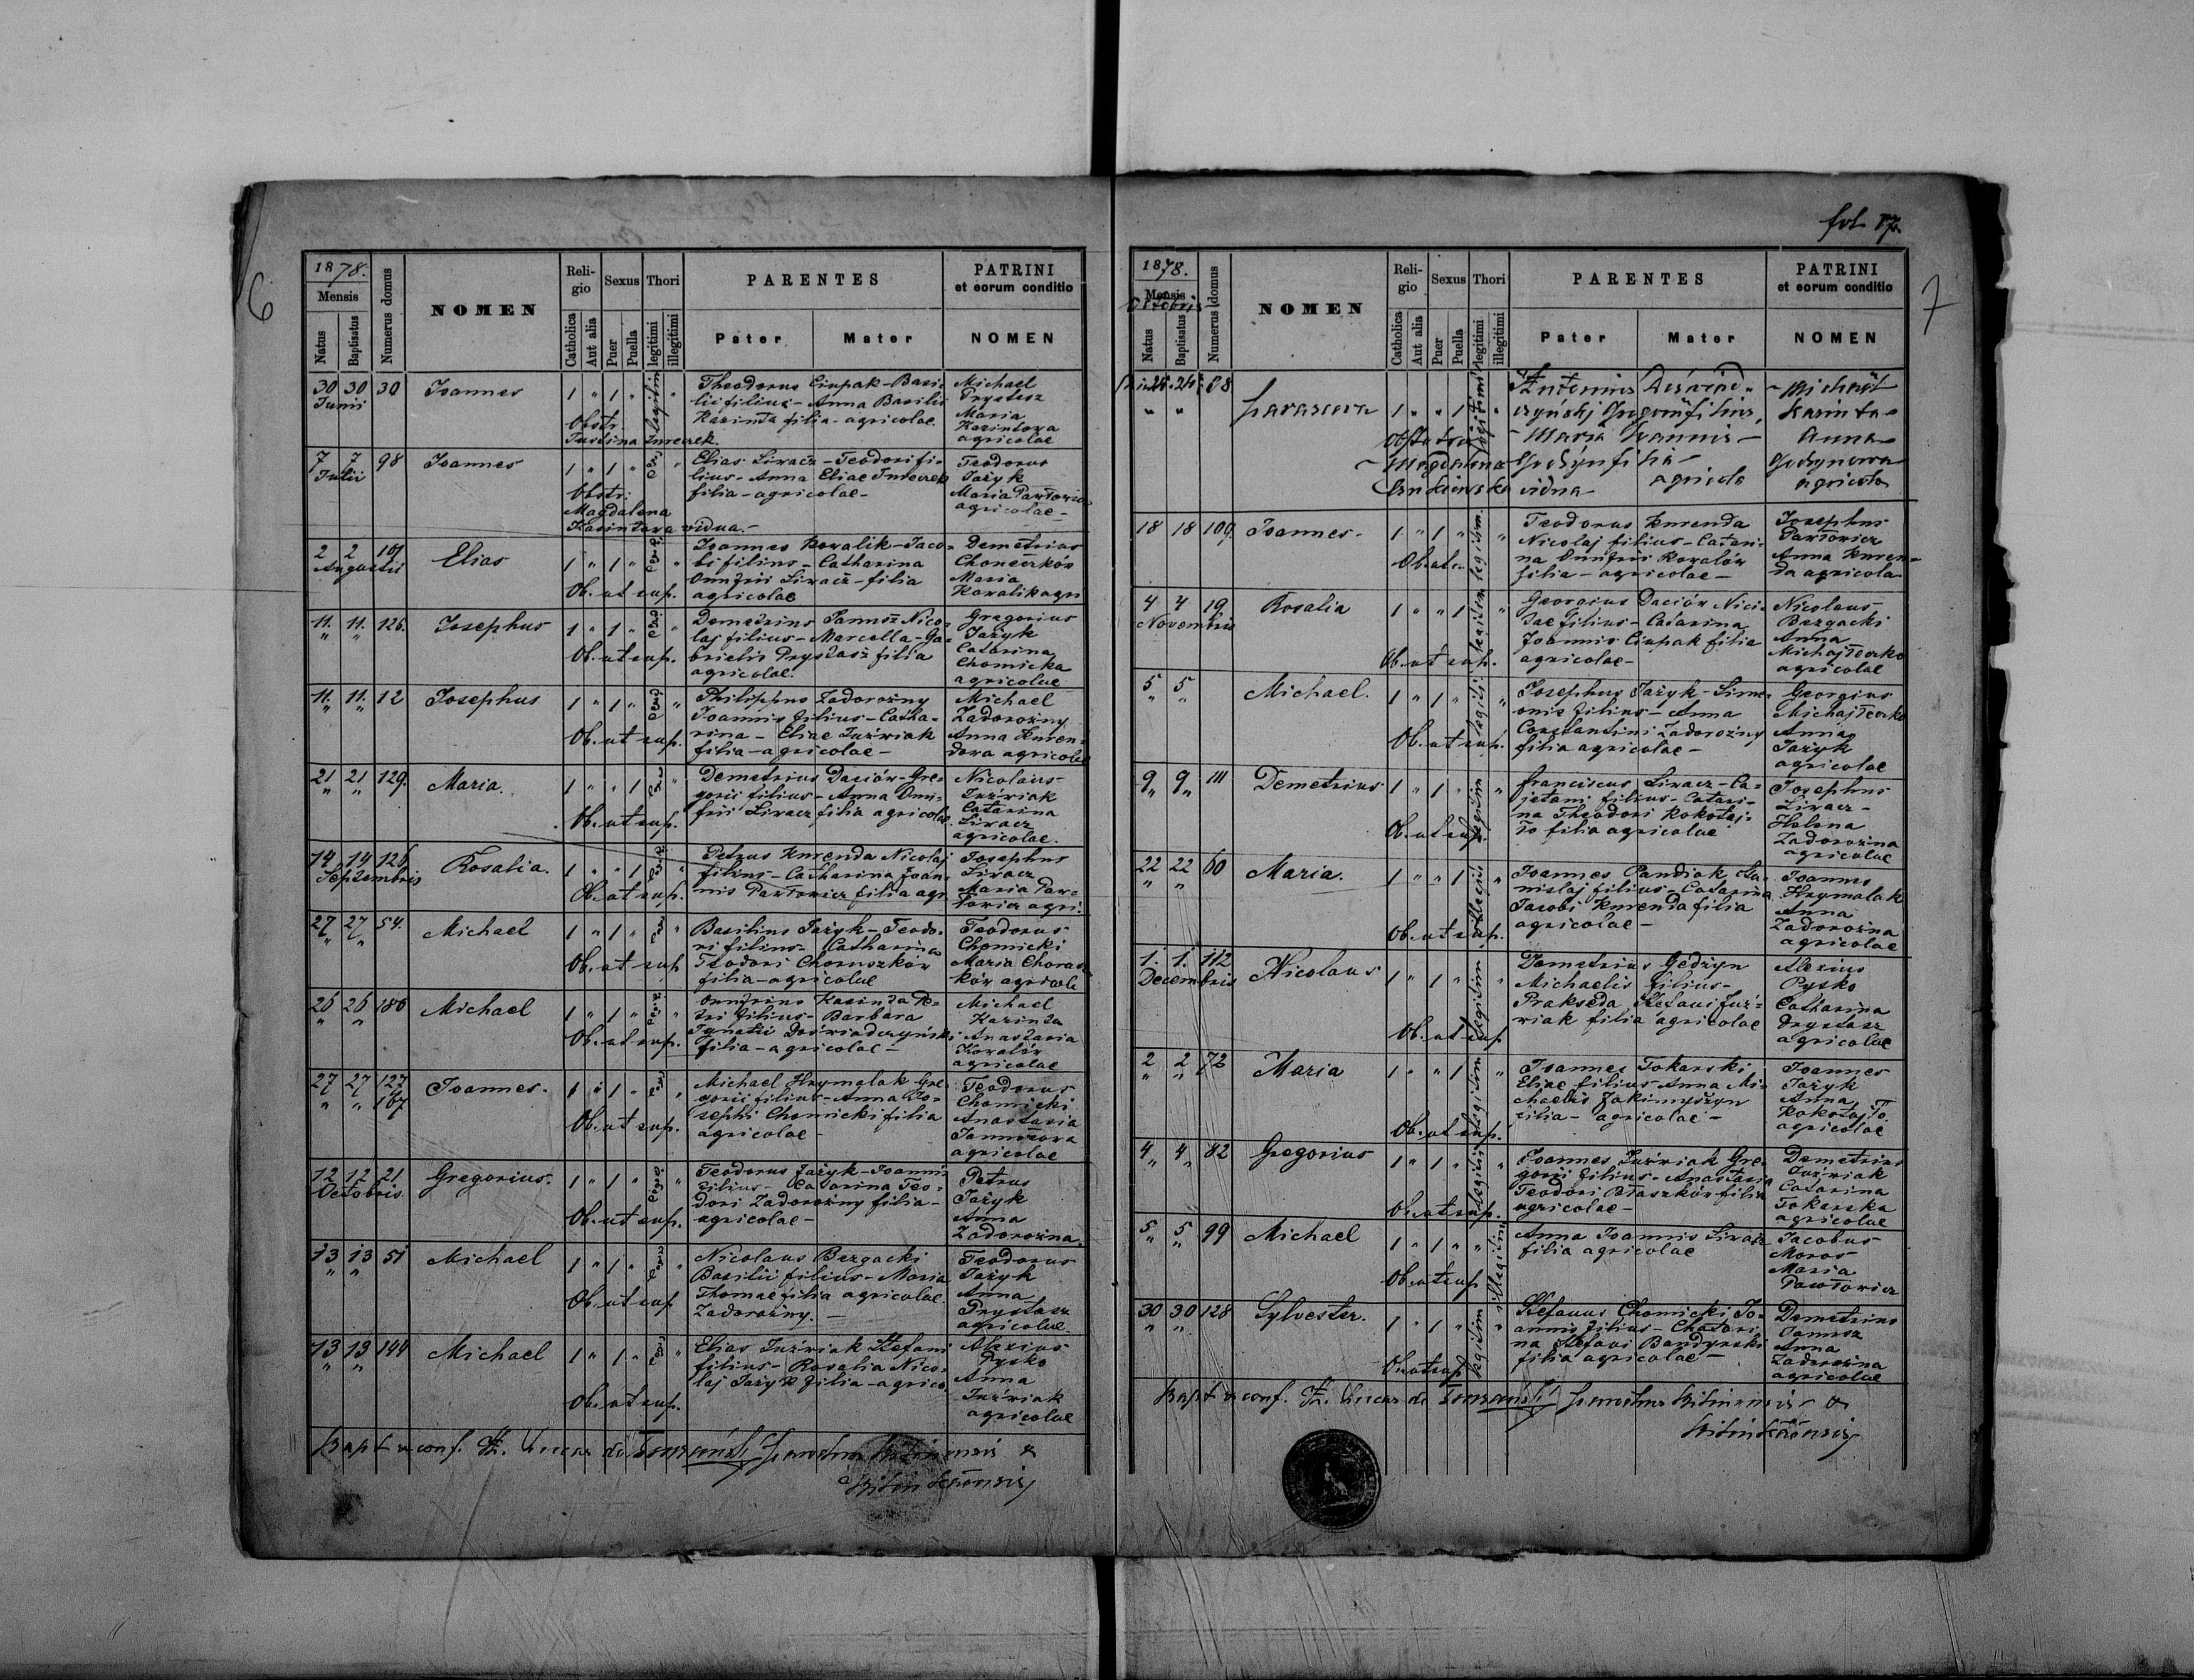 6
1878.
Mensis
Natus
Baptisatus
Numerus domus
NOMEN
Reli-
gio
Catholica
Aut alia
Sexus
Puer
Puella
Thori
legitimi
illegitimi
PARENTES
Pater
Mater
PATRINI
et eorum conditio
NOMEN
30 30 30 Joannes 1 " 1 " legitim "
Junii
Obstr.
Justina Kmeczek.
Theodorus Ciupak - Basi-
lii filius - Anna Basilii
Kazinta filia - agricolae
Michael
Prystasz
Maria
Kazintowa
agricolae
7 7 98 Joannes 1 " 1 " "
Julii
Obstr.
Magdalena
Kazintowa vidua.-
Elias Siracz - Teodori fi-
lius - Anna Eliae Kmeczek
filia - agricolae -
Teodorus
Jażyk
Maria Pawłowicz
agricolae -
2 2 101 Elias 1 " 1 " "
Augustii
Ob. ut sup.
Joannes Kowalik - Jaco-
bi filius - Catharina
Onufrii Siracz - filia
agricolae
Demetrius
Chomeczków
Maria
Kowalik agri
11. 11. 126. Josephus 1 " 1 " "
" "
Ob. ut sup.
Demetrius Pannsz Nico-
laj filius - Marcella - Ga-
brielis Prystasz filia
agricolae.
Gregorius
Jażyk
Catarina
Chomicka
agricolae
11. 11. 12 Josephus 1 " 1 " "
" "
Ob. ut sup.
Philippus Zadorożny
Joannis filius - Catha-
rina - Eliae Juźwiak
filia - agricolae -
Michael
Zadorożny
Anna Kmen-
dowa agricolae
21 21 129. Maria. 1 " " 1 "
" "
Ob. ut sup.
Demetrius Daciów - Gre-
gorii filius - Anna Onu-
frii Siracz filia agricolae.
Nicolaus -
Juźwiak
Catarina
Siracz
agricolae.
14 14 126 Rosalia. 1 " " 1 "
Septembris
Ob. ut sup.
Petrus Kmenda Nicolaj
filius - Catharina Joan-
nis Pawłowicz filia agr
Josephus
Siracz
Maria Paw-
łowicz agri.
27 27 54. Michael 1 " 1 " "
" "
Ob. ut sup
Basilius Jażyk - Teodo-
ri filius - Catharina
Teodori Choruszków
filia - agricolae
Teodorus
Chomicki
Maria Chorasz
ków agricolae
26 26 180 Michael 1 " 1 " "
" "
Ob. ut sup.
Onufrius Kazinta Pe-
tri filius - Barbara
Ignatii Doświadczyński
filia - agricolae -
Michael
Kazinta
Anastasia
Kowalów
agricolae
27 27 127 Joannes. 1 " 1 " "
" " 107
Ob. ut sup.
Michael Hrymalak Gre-
gorii filius - Anna Jo-
sephi Chomicki filia
agricolae -
Teodorus
Chomicki
Anastasia
agricolae
12 12 21. Gregorius. 1 " 1 " "
Octobris
Ob. ut sup.
Teodorus Jażyk - Joannis
filius - Catarina Teo-
dori Zadorożny filia -
agricolae -
Petrus
Jażyk
Anna
Zadorożna.
13 13 51 Michael 1 " 1 " "
" "
Ob. ut sup
Nicolaus Bezgacki
Basilii filius - Maria
Thomae filia agricolae.
Zadorożny. -
Teodorus
Jażyk
Anna
Prystasz
agricolae.
13 13 144 Michael 1 " 1 " "
" "
Ob. ut sup.
Elias Juźwiak Stefani
filius - Rosalia Nico-
laj Jażyk filia - agrico.
Alexius
Pysko
Anna
Juźwiak
agricolae
Bapt et conf. Fr. Lucas de
fol. 17.
7
1878.
Mensis
Octobris
Natus
Baptisatus
Numerus domus
NOMEN
Reli-
gio
Catholica
Aut alia
Sexus
Puer
Puella
Thori
legitimi
illegitimi
PARENTES
Pater
Mater
PATRINI
et eorum conditio
NOMEN
Parasceva 1 " " 1 legitimi "
" "
Obstetra
Magdalena
Antonius Doświad-
czyńskj Gregorii filius,
- Maria Joannis -
Gedzyn filia -
vidua agricola
- Michaël
Kazinta -
Anna
Gedzynowa
agricola
18 18 109. Joannes - 1 " 1 " legitim. "
Ob. ut s.
Teodorus Kmenda
Nicolaj filius - Catari-
na Onufrii Kowalów
filia - agricolae -
Josephus
Pawłowicz
Anna Kmen-
da agricola
4 4 19 Rosalia 1 " " 1 legitim "
Novembris
Ob. ut sup.
Georgius Daciów Nico-
lae filius - Catarina
Joannis Ciupak filia
agricolae -
Nicolaus
Bezgacki
Anna
Michajłeczko
agricolae
5 5 Michael. 1 " 1 " legiti "
" "
Ob. ut sup.
Josephus Jażyk - Sime-
onis filius - Anna
Constantini Zadorożny
filia agricolae -
Georgius
Michajłeczko
Anna
Jażyk
agricolae
9 9 111 Demetrius 1 " 1 " legitim "
" "
Ob. ut sup.
Franciscus Siracz - Ca-
jetani filius - Catari-
na Theodori Kokotaj-
ło filia agricolae
Josephus
Siracz -
Helena
Zadorożna
agricolae
22 22 60 Maria. 1 " " 1 "
" "
Ob. ut sup.
Joannes Pandiak Sta-
nislaj filius - Catarina
Jacobi Kmenda filia
agricolae -
Joannes
Hrymalak
Anna
Zadorożna
agricolae
1. 1. 112 Nicolaus 1 " 1 " legitim "
Decembris
Ob. ut sup
Demetrius Gedżyn
Michaelis filius -
Prakseda Stefani Juź-
wiak filia agricolae
Alexius
Pysko
Catharina
Prystasz
agricolae
2 2 72 Maria 1 " " 1 legitim "
" "
Ob. ut sup.
Joannes Tokarski
Eliae filius Anna Mi-
chaelis
filia - agricolae -
Joannes
Jażyk
Anna
Kokotajło
agricolae
4 4 82 Gregorius 1 " 1 " legitim "
" "
Ob. ut sup.
Joannes Juźwiak Gre-
gorii filius - Anastasia
Teodori Błaszków filia
agricolae -
Demetrius
Juźwiak
Catarina
Tokarska
agricolae
5 5 99 Michael 1 " 1 " " illegitim
" "
Ob. ut sup
Anna Joannis Siracz
filia agricolae
Jacobus
Moros
Maria
Pawłowicz
30 30 128 Sylvester. 1 " 1 " legitim "
" "
Ob. ut sup
Stefanus Chomicki Jo-
annis filius - Chatari-
na Stefani Bandyrski
filia agricolae -
Demetrius
Pannsz
Anna
Zadorożna
agricolae
Bapt et conf. Fr. Lucas de